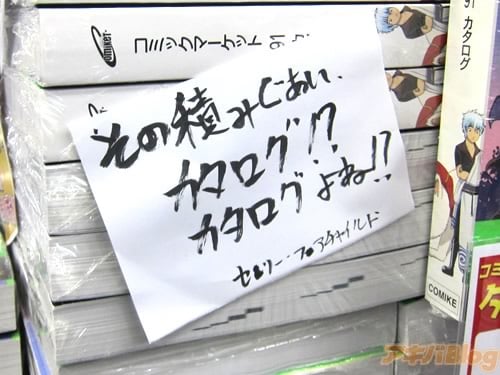 COMIKET コミックマーケット 91 カ
91 カタログ
その積みぐあい、
カタログ!?
カタログよね!?
フェアチャイルド
COMIKE
コミ
アキバBlog